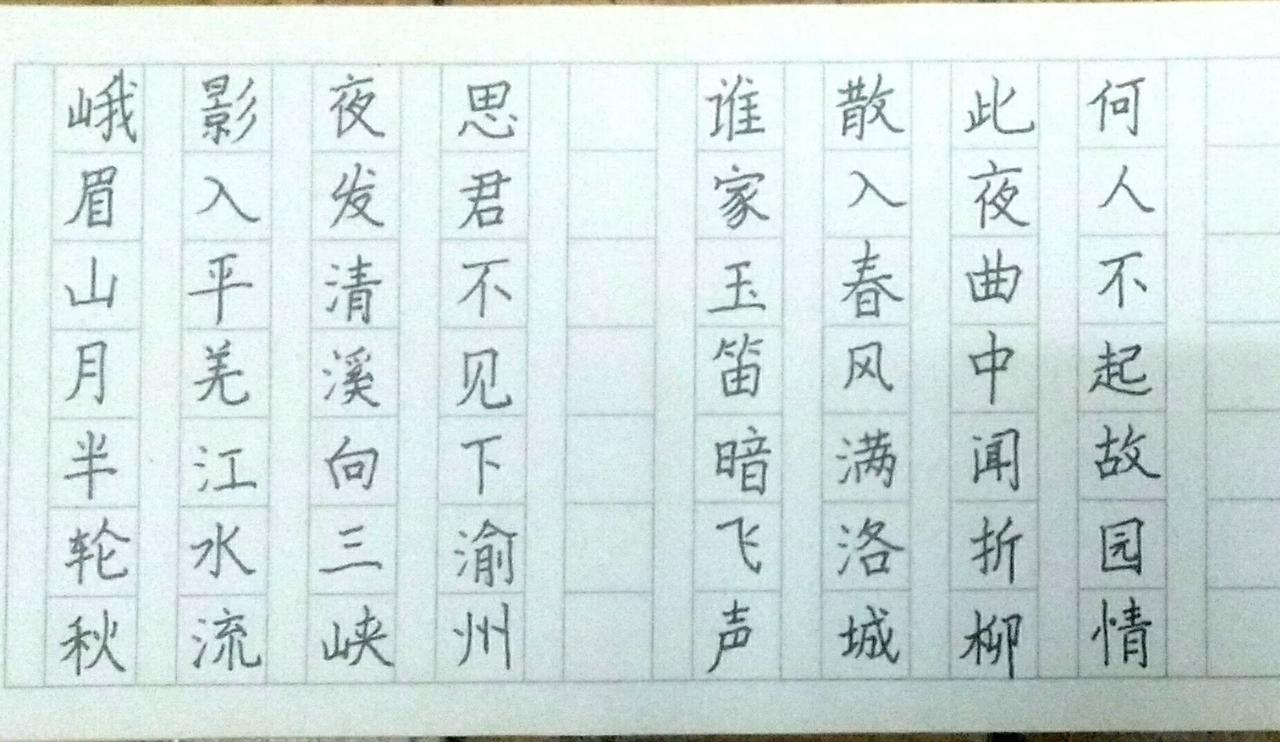 峨眉山月半轮秋
影入平羌江水流
夜发清溪向三峡
思君不见下渝州
谁家玉笛暗飞声
散入春风满洛城
此夜曲中闻折柳
何人不起故园情